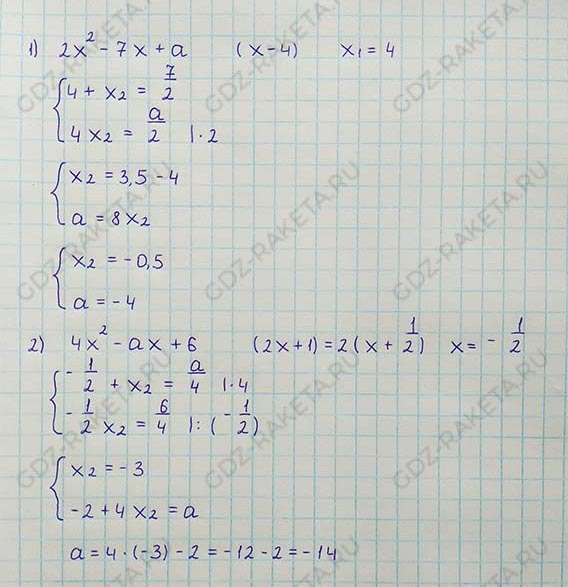 1) 2x² - 7x + a (x-4) x₁ = 4
4 + x₂ = 7/2
4x₂ = a/2 |·2
x₂ = 3,5 - 4
a = 8x₂
x₂ = -0,5
a = -4
2) 4x² - ax + 6 (2x+1) = 2(x + 1/2) x = - 1/2
- 1/2 + x₂ = a/4 |·4
- 1/2 x₂ = 6/4 |: (- 1/2)
x₂ = -3
-2 + 4x₂ = a
a = 4·(-3) - 2 = -12 - 2 = -14
GDZ-RAKETA.RU